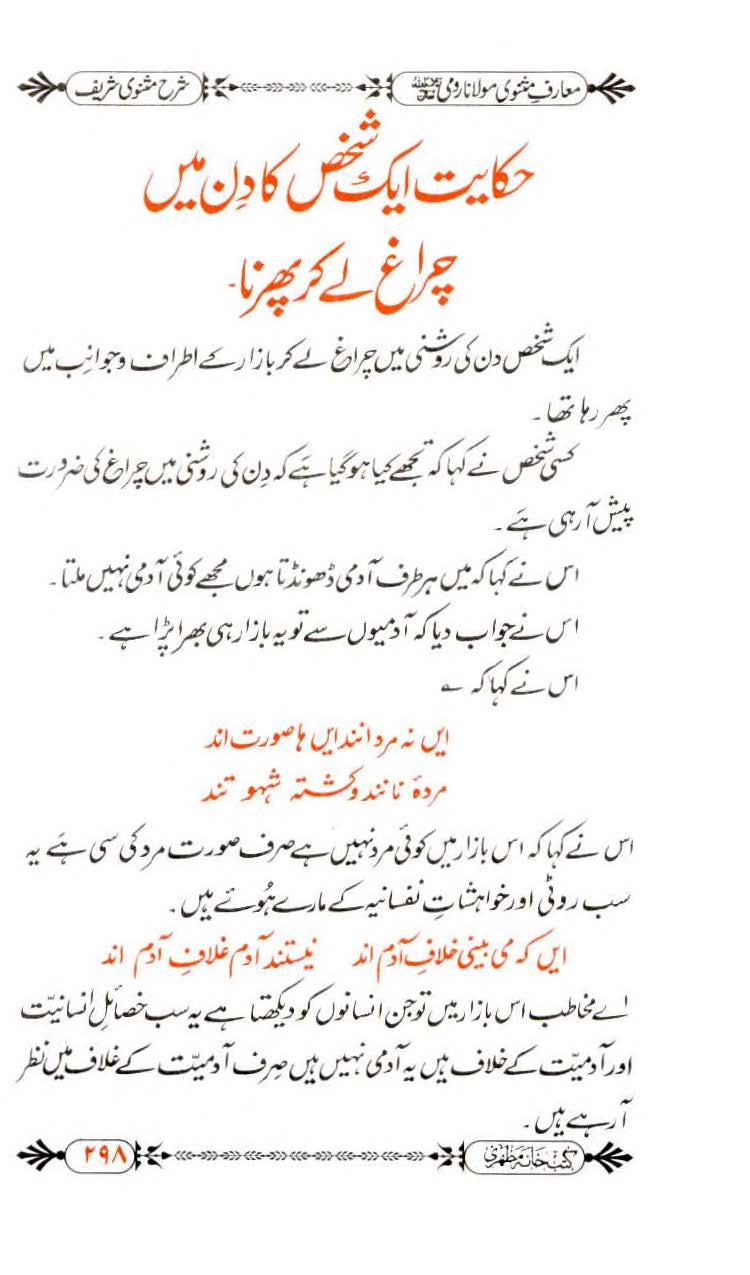 معارفِ مثنوی مولانا رومی رحمۃ اللہ علیہ
شرح مثنوی شریف
حکایت ایک شخص کا دِن میں
چراغ لے کر پھرنا۔
ایک شخص دن کی روشنی میں چراغ لے کر بازار کے اطراف و جوانِب میں
پھر رہا تھا۔
کسی شخص نے کہا کہ تجھے کیا ہو گیا ہَے کہ دِن کی روشنی میں چراغ کی ضرورت
پیش آ رہی ہَے۔
اس نے کہا کہ میں ہر طرف آدمی ڈھونڈتا ہوں مجھے کوئی آدمی نہیں ملتا۔
اس نے جواب دیا کہ آدمیوں سے تو یہ بازار ہی بھرا پڑا ہے۔
اس نے کہا کہ ؎
ایں نہ مردانند ایں ہا صورت اند
مردۂ نانند و کشتہ شہو تند
اس نے کہا کہ اس بازار میں کوئی مرد نہیں ہے صرف صورت مرد کی سی ہے یہ
سب روٹی اور خواہشاتِ نفسانیہ کے مارے ہُوئے ہیں۔
ایں کہ می بینی خلافِ آدم اند نیستند آدم غلافِ آدم اند
اے مخاطب اس بازار میں تو جن انسانوں کو دیکھتا ہے یہ سب خصائلِ انسانیّت
اور آدمیّت کے خلاف ہیں یہ آدمی نہیں ہیں صِرف آدمیّت کے غلاف میں نظر
آ رہے ہیں۔
کتب خانہ مظہری
۲۹۸